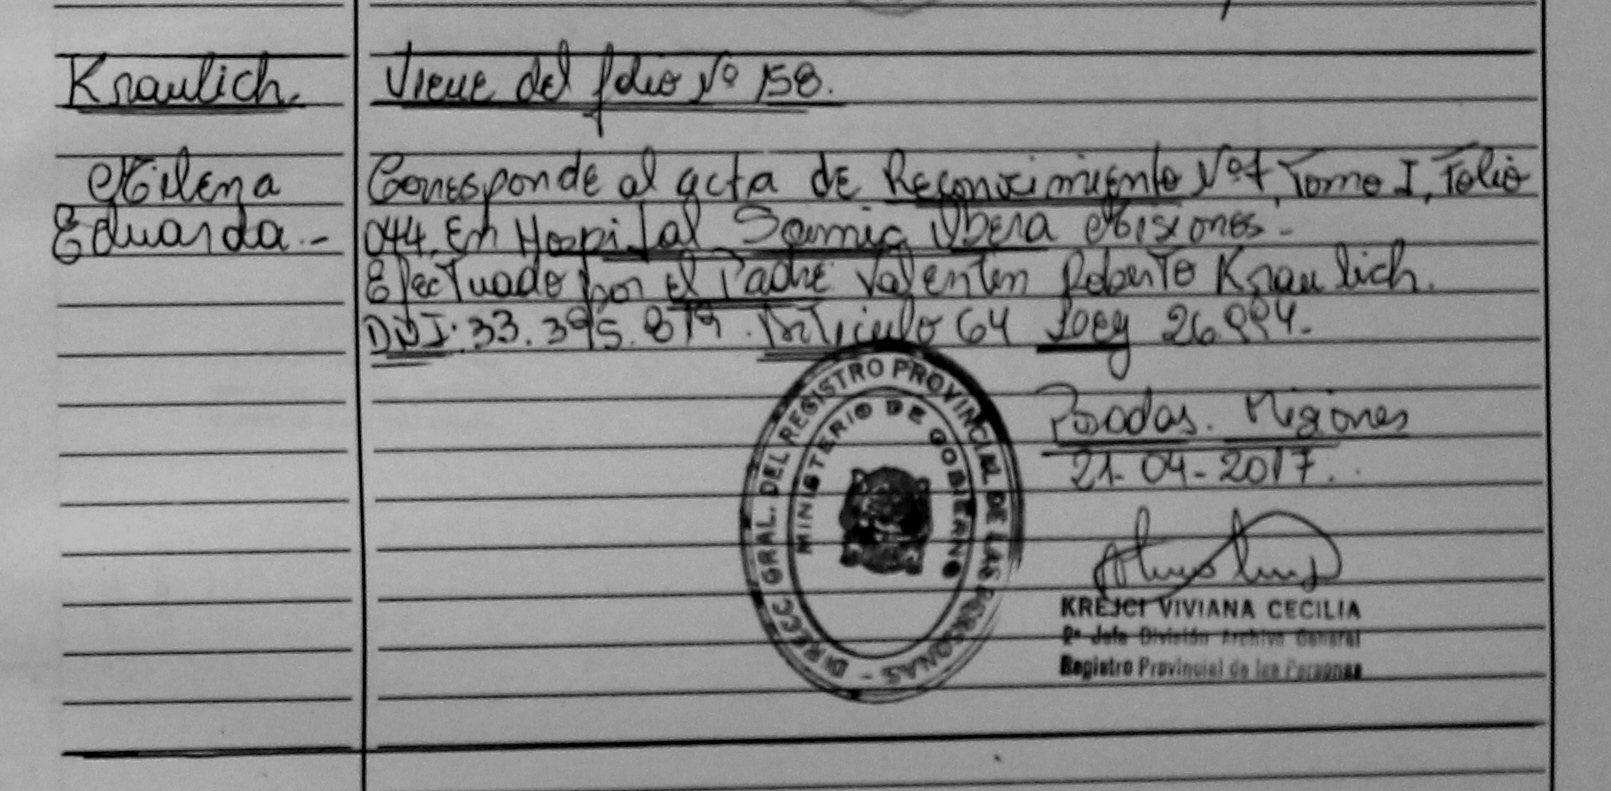 Kraulich.
Viene del folio Nº 158.
Milena
Eduarda.-
Corresponde al acta de Reconocimiento Nº 7, Tomo I, Folio
044. En Hospital Samic Obera Misiones.-
Efectuado por el Padre Valentin Roberto Kraulich.
DNI: 33.395.879. Articulo 64 Ley 26.994.-
Posadas. Misiones
21-04-2017.
DIRECC. GRAL. DEL REGISTRO PROVINCIAL DE LAS PERSONAS -
MINISTERIO DE GOBIERNO
KREJCI VIVIANA CECILIA
2º Jefe División Archivo General
Registro Provincial de las Personas